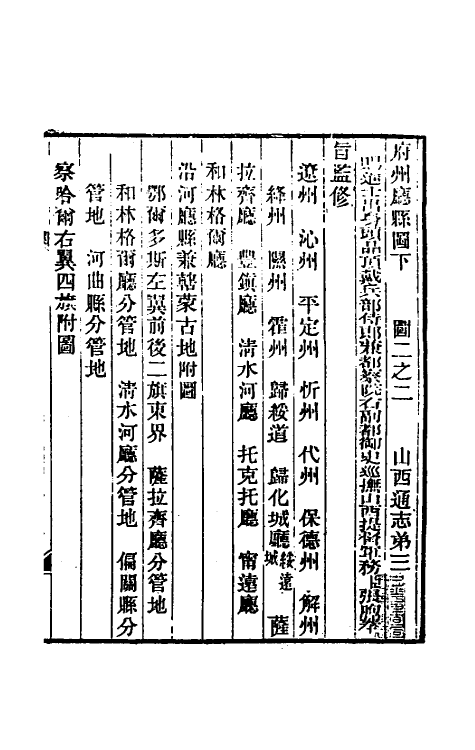 府州廳縣圖下　圖二之二　山西通志弟三
賜進士出身頭品頂戴兵部侍郎兼都察院右副都御史巡撫山西提督軍務
旨監修
遼州　沁州　平定州　忻州　代州　保德州　解州
絳州　隰州　霍州　歸綏道　歸化城廳綏遠城　薩
拉齊廳　豐鎮廳　清水河廳　托克托廳　甯遠廳
和林格爾廳
沿河廳縣兼轄蒙古地附圖
鄂爾多斯左翼前後二旗東界　薩拉齊廳分管地
和林格爾廳分管地　清水河廳分管地　偏關縣分
管地　河曲縣分管地
察哈爾右翼四旗附圖